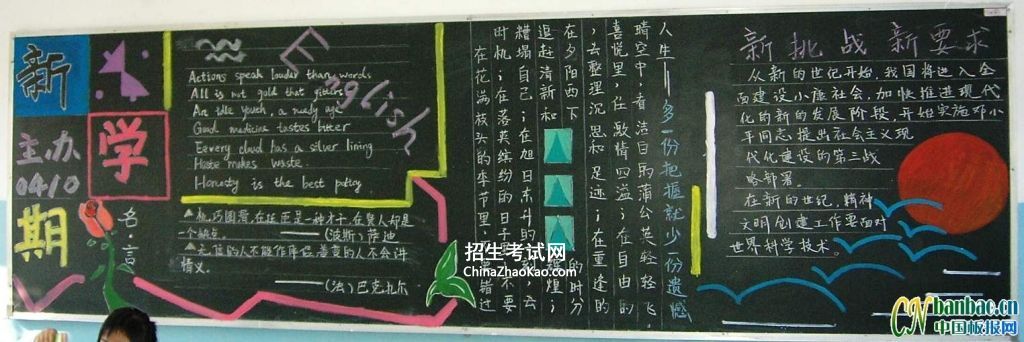 新
学
期
主办
0410
English
Actions speak louder than words
All is not gold that gitters
An idle youth, a needy age
Good medicine tastes bitter
Eevery cloud has a silver lining
Haste makes waste.
Honesty is the best policy
名言
机巧圆滑,在任
是一种才干,在贤人却是
一个缺点。
(波斯)萨迪
无信的人不能作库
善变的人不会讲
情义。
(法)巴克扎尔
人生——多一份把握就少一份遗憾
晴空中,看洁白的蒲公英轻轻飞,
喜悦里,任激情四溢;在自由的
,去整理沉思和足迹;在重逢的
在夕阳西下的时分
追赶清新和辉煌;
糟塌自己;在旭日东升的
,去
时机;在落英缤纷的日子里,不要
在花满枝头的季节里,
错过
新挑战新要求
从新的世纪开始,我国将进入全
面建设小康社会,加快推进现代
化的新的发展阶段,开始实施邓小
平同志提出社会主义现
代化建设的第三战
略部署。
在新的世纪,精神
文明创建工作要面对
世界科学技术。
招生考试网
ChinaZhaoKao.com
CN banbao.cn
中国板报网